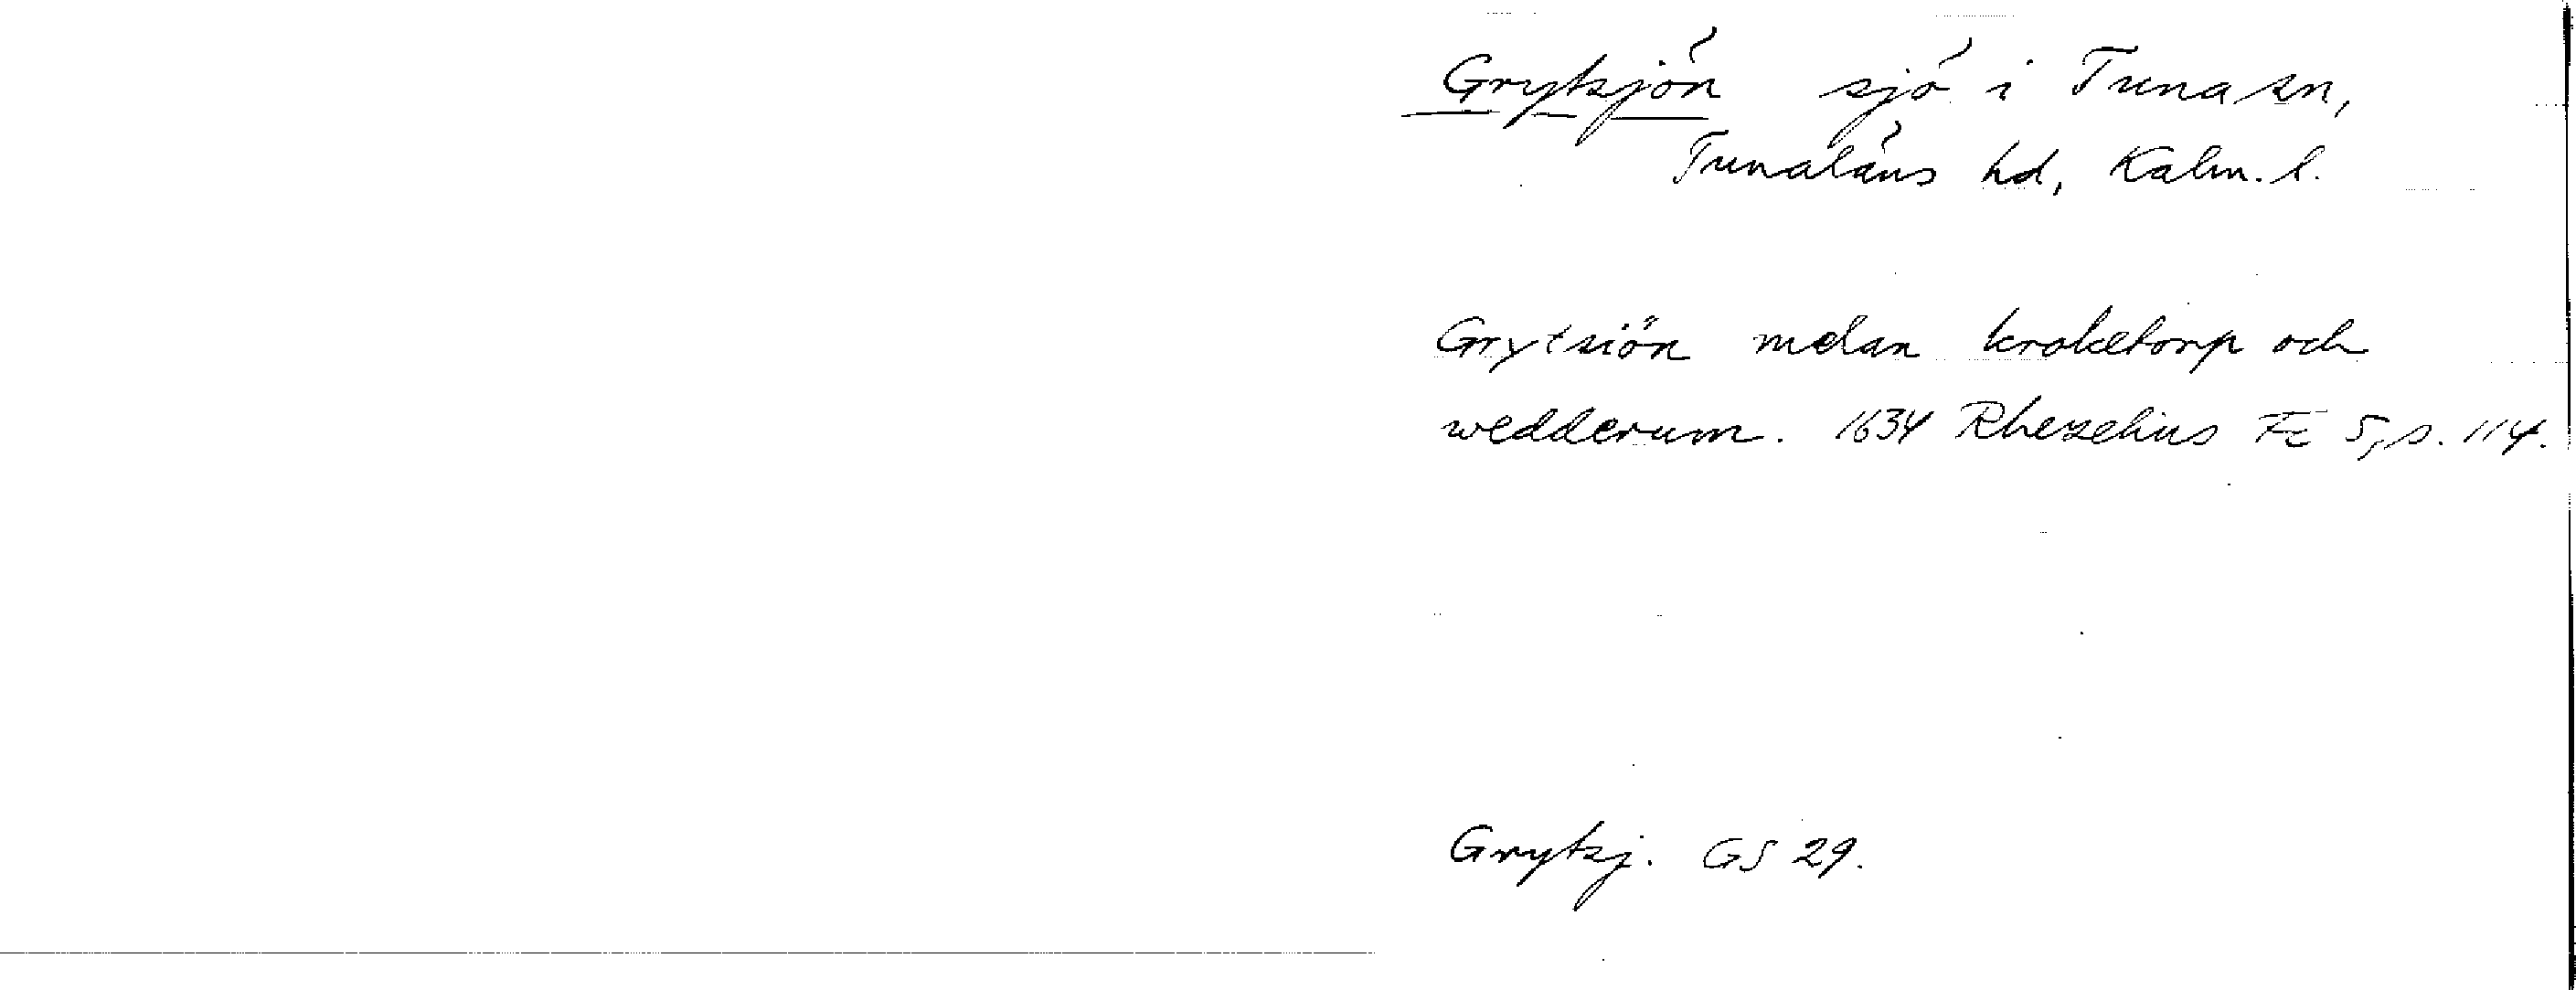 Grytsjön sjö i Tuna sn,
Tunaläns hd, Kalm. l.
Grytsiön melan kroketorp och
wedderum. 1634 Rhezelius Fc 5, s. 114.
Grytsj. GS 29.